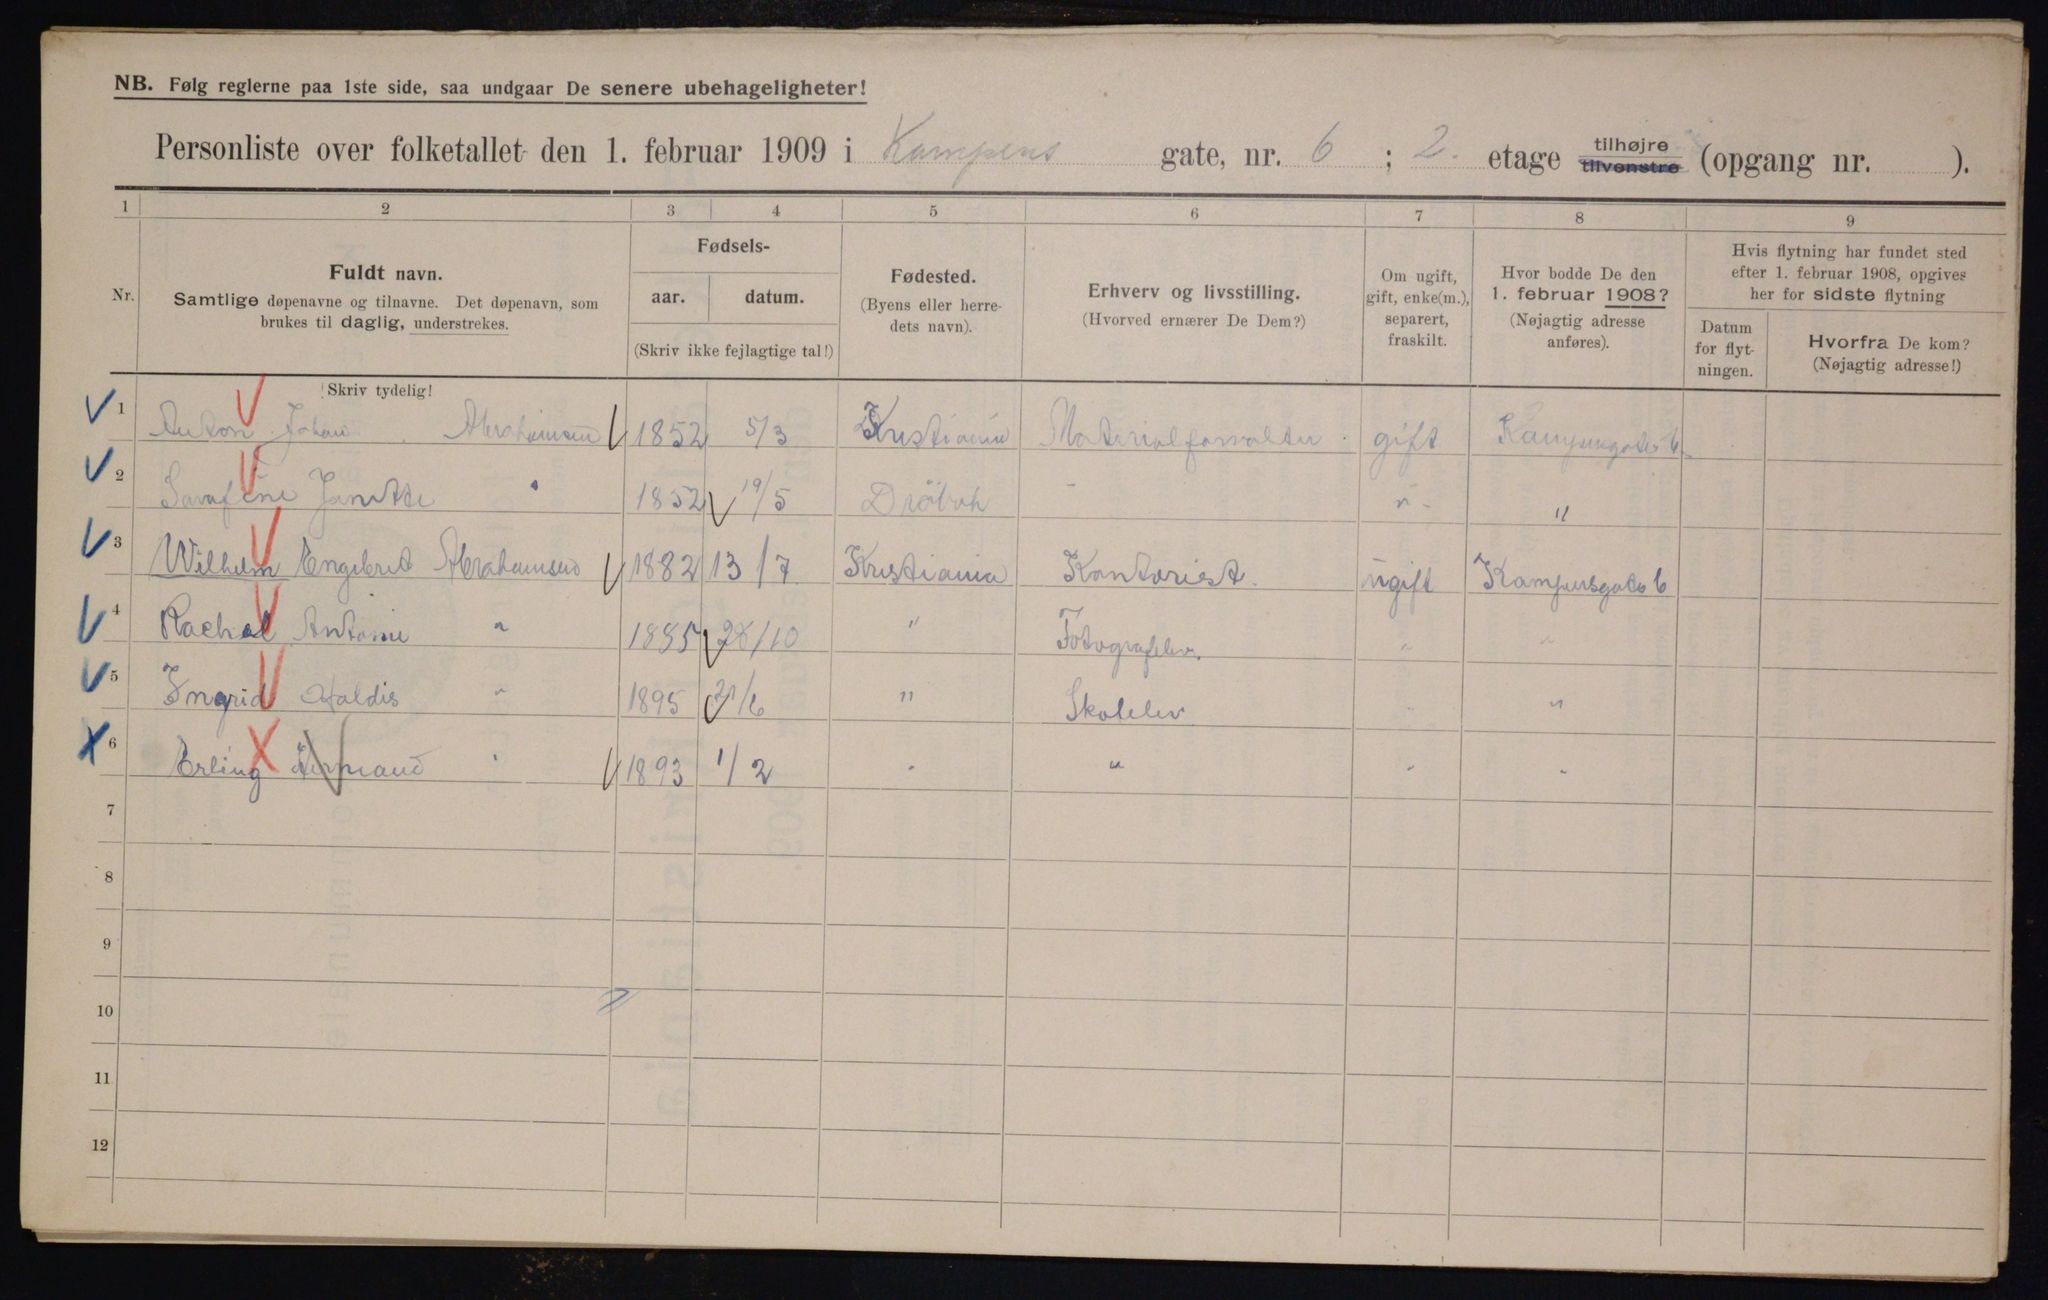 NB. Følg reglerne paa 1ste side, saa undgaar De senere ubehageligheter!
Personliste over folketallet den 1. februar 1909 i Kampens gate, nr. 6 ; 2. etage tilhøjre tilvenstre (opgang nr. ).
1 2 3 4 5 6 7 8 9
Nr.
Fuldt navn.
Samtlige døpenavne og tilnavne. Det døpenavn, som
brukes til daglig, understrekes.
Fødsels-
aar. datum.
(Skriv ikke fejlagtige tal!)
Fødested.
(Byens eller herre-
dets navn).
Erhverv og livsstilling.
(Hvorved ernærer De Dem?)
Om ugift,
gift, enke(m.),
separert,
fraskilt.
Hvor bodde De den
1. februar 1908?
(Nøjagtig adresse
anføres).
Hvis flytning har fundet sted
efter 1. februar 1908, opgives
her for sidste flytning
Datum
for flyt-
ningen.
Hvorfra De kom?
(Nøjagtig adresse!)
Skriv tydelig!
1 Anton Johan Abrahamsen 1852 5/3 Kristiania Materialforvalter. gift Kampensgate 6
2 Serafine Janette " 1852 19/5 Dröbak - " "
3 Wilhelm Engebret Abrahamsen 1882 13/7 Kristiania Kontorist. ugift Kampensgate 6
4 Rachel Antonie " 1885 28/10 " Fotografelev. " "
5 Ingrid Haldis " 1895 21/6 " Skolelev " "
6 Erling " 1893 1/2 " " " "
7
8
9
10
11
12